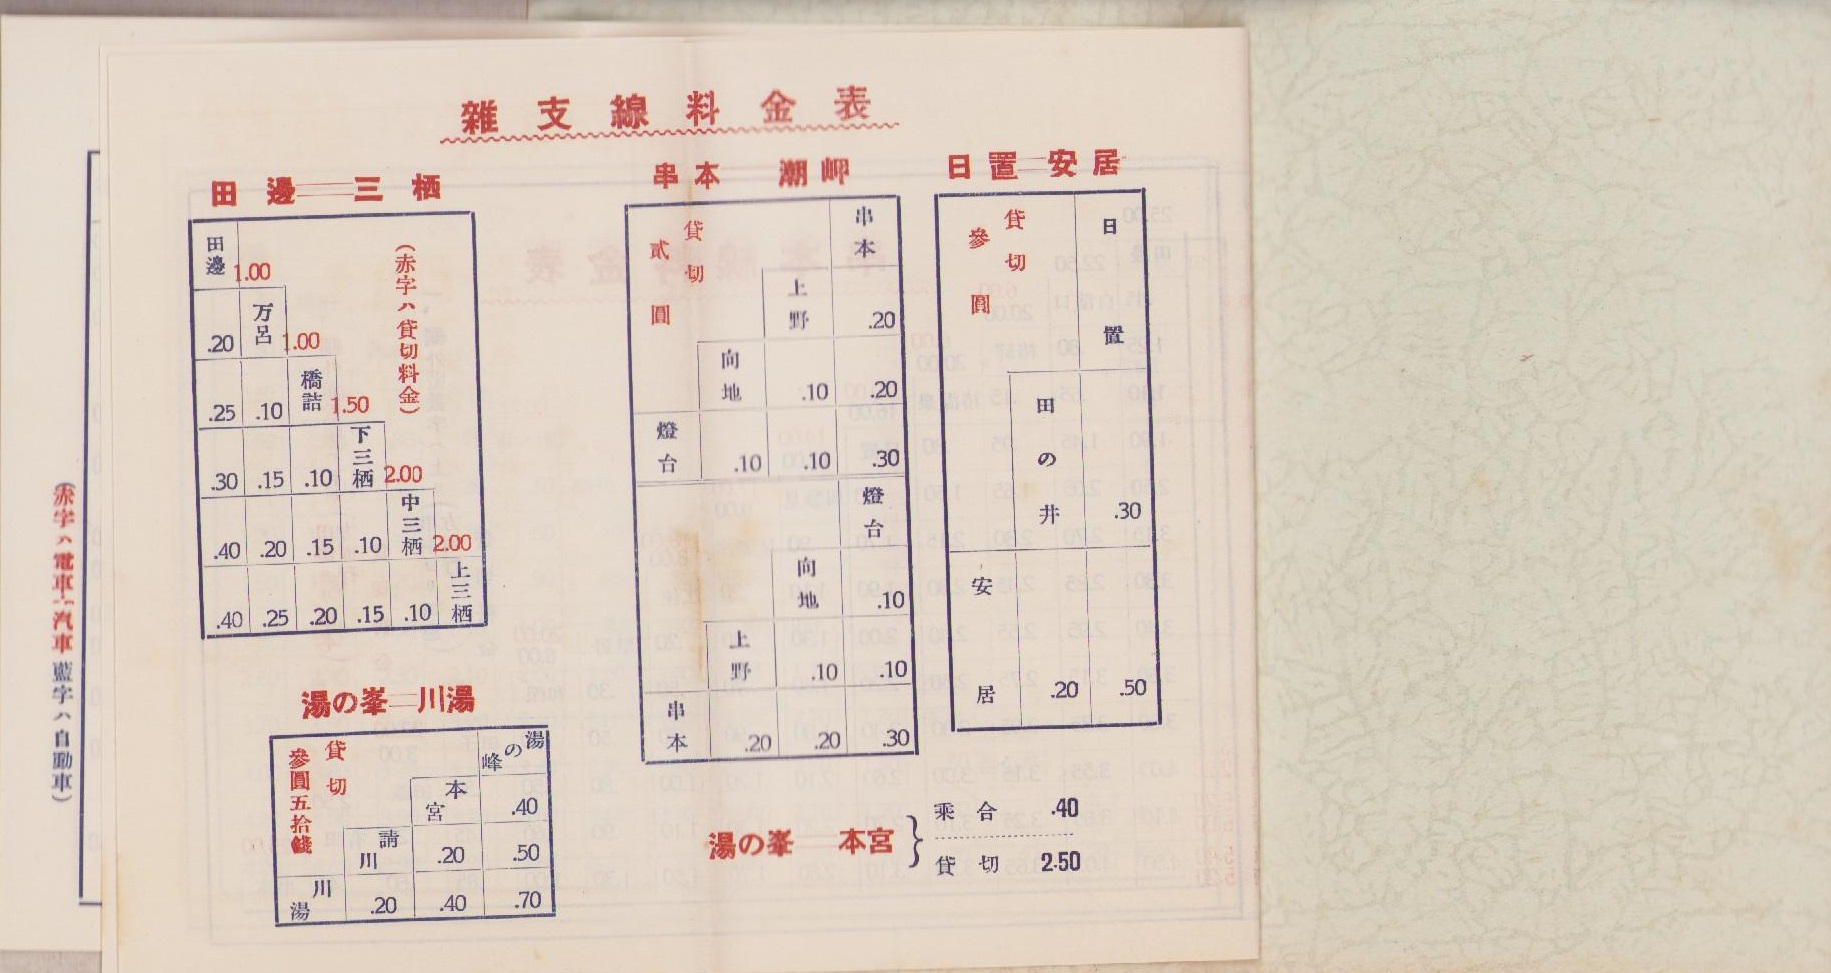 雜支線料金表
田邊＝三栖
田邊 1.00
(赤字ハ貸切料金)
.20 万呂 1.00
.25 .10 橋詰 1.50
.30 .15 .10 下三栖 2.00
.40 .20 .15 .10 中三栖 2.00
.40 .25 .20 .15 .10 上三栖
湯の峯＝川湯
貸切
參圓五拾錢
湯の峰
本宮 .40
請川 .20 .50
川湯 .20 .40 .70
串本 潮岬
貸切
貳圓
串本
上野 .20
向地 .10 .20
燈台 .10 .10 .30
燈台
向地 .10
上野 .10 .10
串本 .20 .20 .30
日置＝安居
貸切
參圓
日置
田の井 .30
安居 .20 .50
湯の峯＝本宮
乘合 .40
貸切 2.50
(赤字ハ電車・汽車 藍字ハ自動車)